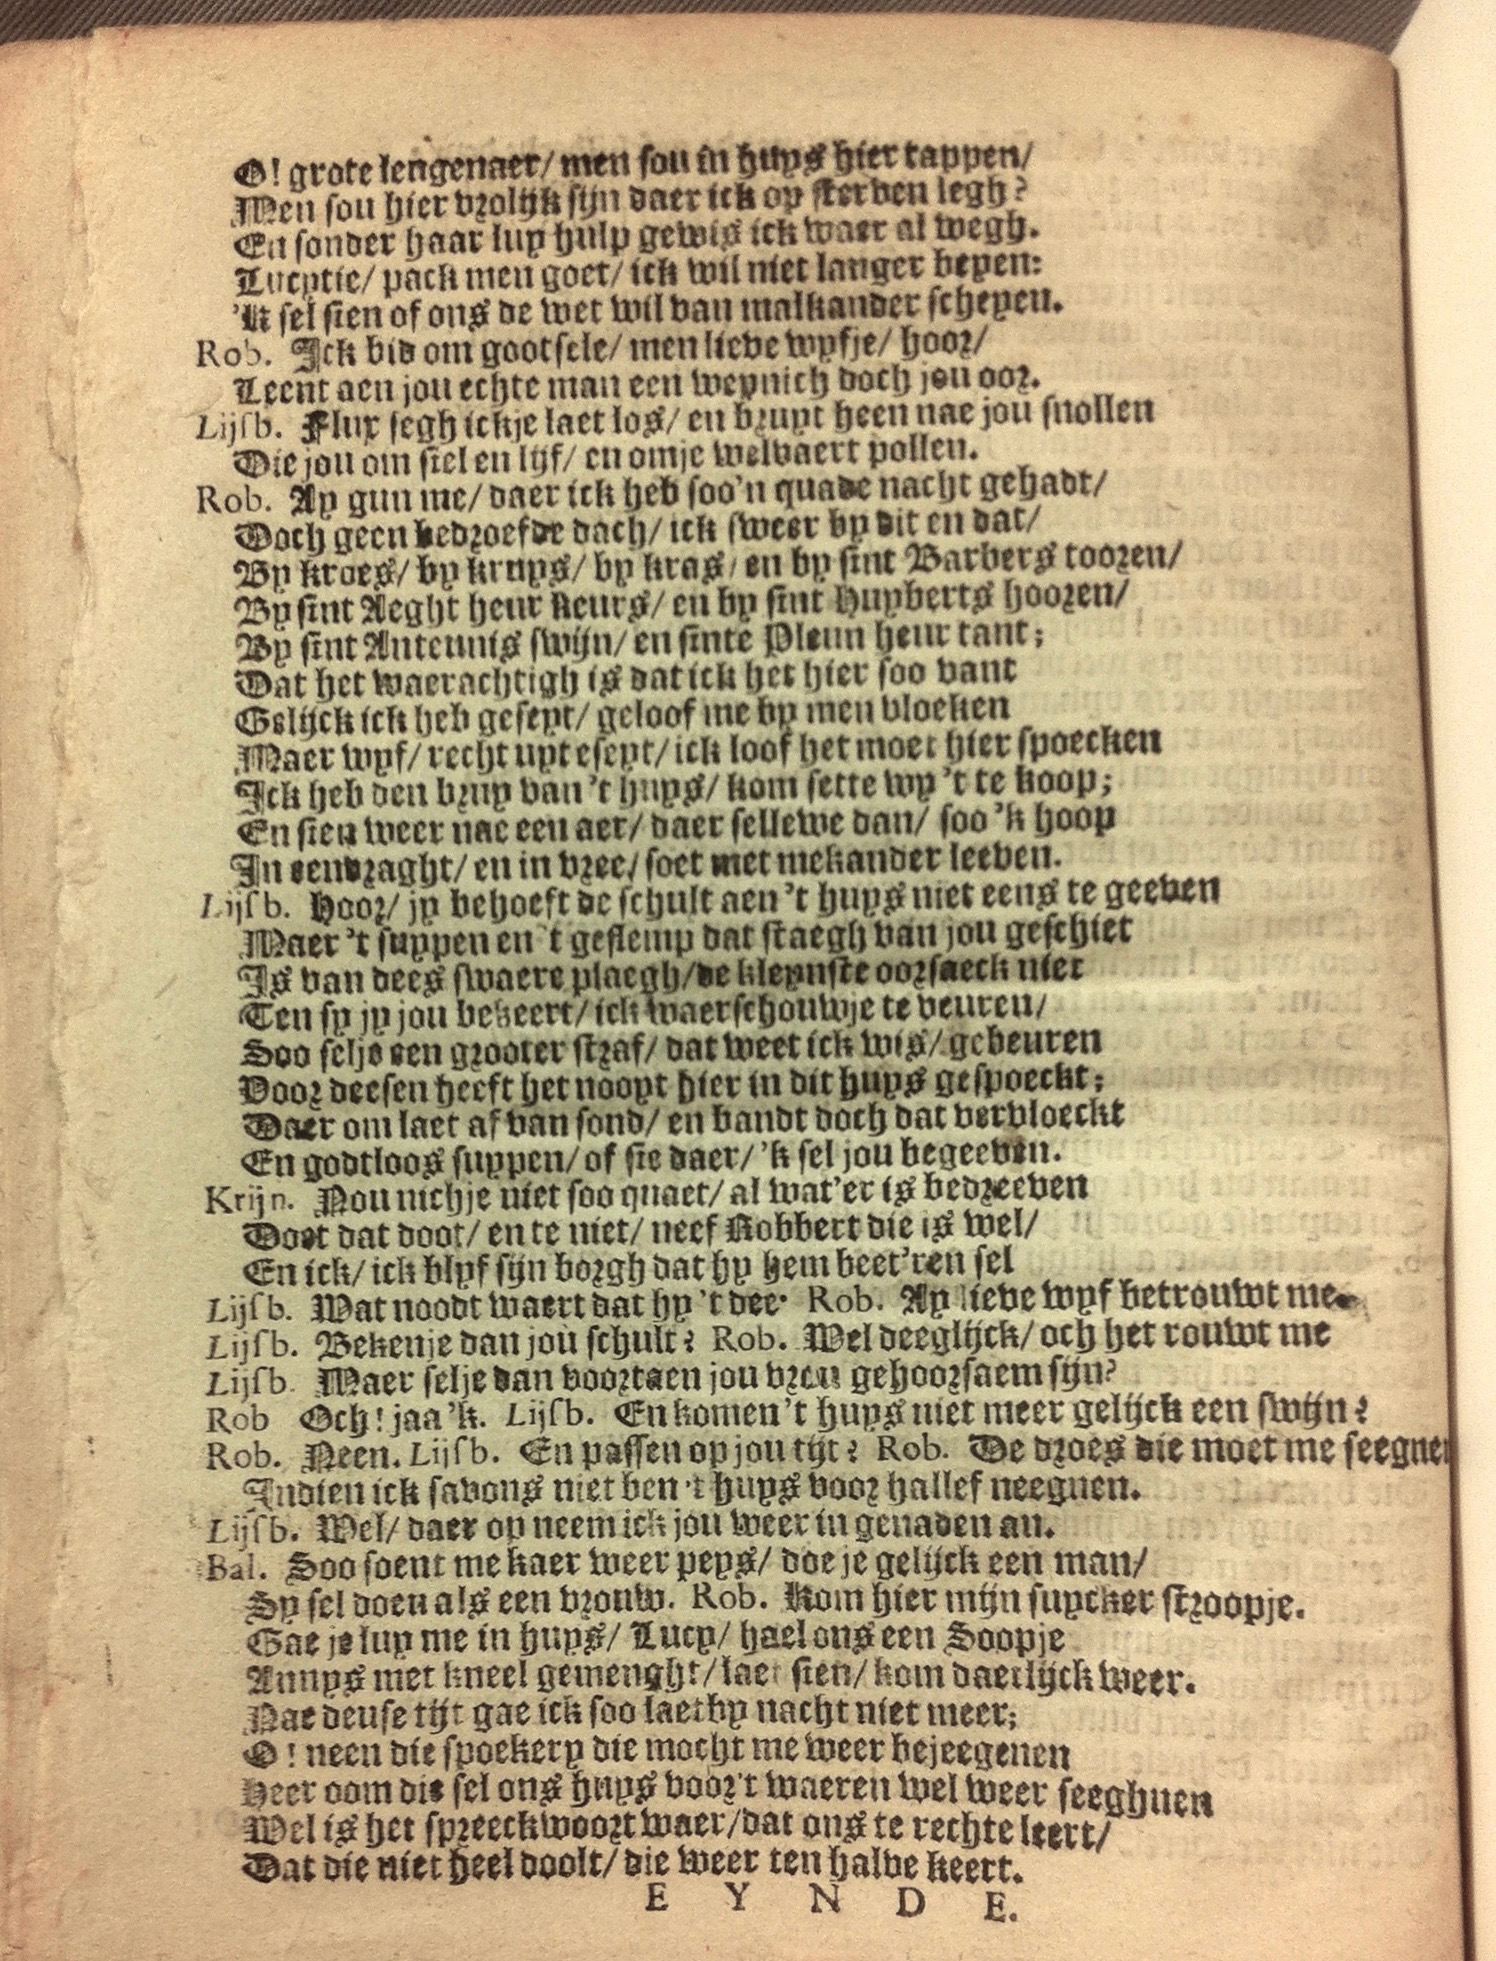 O! grote lengenaer/ men sou in huys hier tappen/
Men sou hier vrolijk sijn daer ick op sterven legh?
En sonder haar luy hulp gewis ick waer al wegh.
Lucytie/ pack men goet/ ick wil niet langer beyen:
'k sel sien of ons de wet wil van malkander scheyen.
Rob. Ick bid om gootsele/ men lieve wyfje/ hoor/
Leent aen jou echte man een weynich doch jou oor.
Lijsb. Flux segh ickje laet los/ en bruyt heen nae jou snollen
Die jou om siel en lijf/ en omje welvaert pollen.
Rob. Ay gun me/ daer ick heb soo'n quade nacht gehadt/
Doch geen bedroefde dach/ ick sweer by dit en dat/
By kroes/ by kruys/ by kras/ en by sint Barbers tooren/
By sint Aeght heur keurs/ en by sint Huyberts hooren/
By sint Anteunis swijn/ en sinte Pleun heur tant;
Dat het waerachtigh is dat ick het hier soo vant
Gelijck ick heb geseyt/ geloof me by men vloeken
Maer wyf/ recht uyt eseyt/ ick loof het moet hier spoecken
Ick heb den bruy van 't huys/ kom sette wy 't te koop;
En sien weer nae een aer/ daer sellewe dan/ soo 'k hoop
In eendraght/ en in vree/ soet met mekander leeven.
Lijsb. Hoor/ jy behoeft de schult aen 't huys niet eens te geeven
Maer 't suypen en 't geslemp dat staegh van jou geschiet
Is van dees swaere plaegh/ de kleynste oorsaeck niet
Ten sy jy jou bekeert/ ick waerschouwje te veuren/
Soo selje een grooter straf/ dat weet ick wis/ gebeuren
Voor deesen heeft het nooyt hier in dit huys gespoeckt;
Daer om laet af van sond/ en bandt doch dat vervloeckt
En godtloos suypen/ of sie daer/ 'k sel jou begeeven.
Krijn. Nou nichje niet soo quaet/ al wat'er is bedreeven
Doet dat doot/ en te niet/ neef Robbert die is wel/
En ick/ ick blyf sijn borgh dat hy hem beet'ren sel
Lijsb. Wat noodt waert dat hy 't dee. Rob. Ay lieve wyf betrouwt me.
Lijsb. Bekenje dan jou schult? Rob. Wel deeglijck/ och het rouwt me
Lijsb. Maer selje dan voortaen jou vrou gehoorsaem sijn?
Rob Och! jaa 'k. Lijsb. En komen 't huys niet meer gelijck een swijn?
Rob. Neen. Lijsb. En passen op jou tijt? Rob. De droes die moet me seegnen
Indien ick savons niet ben 't huys voor hallef neegnen.
Lijsb. Wel/ daer op neem ick jou weer in genaden an.
Bal. Soo soent mekaer weer peys/ doe je gelijck een man/
Sy sel doen als een vrouw. Rob. Kom hier mijn suycker stroopje.
Gae je luy me in huys/ Lucy/ hael ons een Soopje
Annys met kneel gemenght/ laet sien/ kom daetlijck weer.
Nae deuse tijt gae ick soo laet by nacht niet meer;
O! neen die spoekery die mocht me weer bejeegenen
Heer oom die sel ons huys voor 't waeren wel weer seeghnen
Wel is het spreeckwoort waer/ dat ons te rechte leert/
Dat die niet heel doolt/ die weer ten halve keert.
E Y N D E.